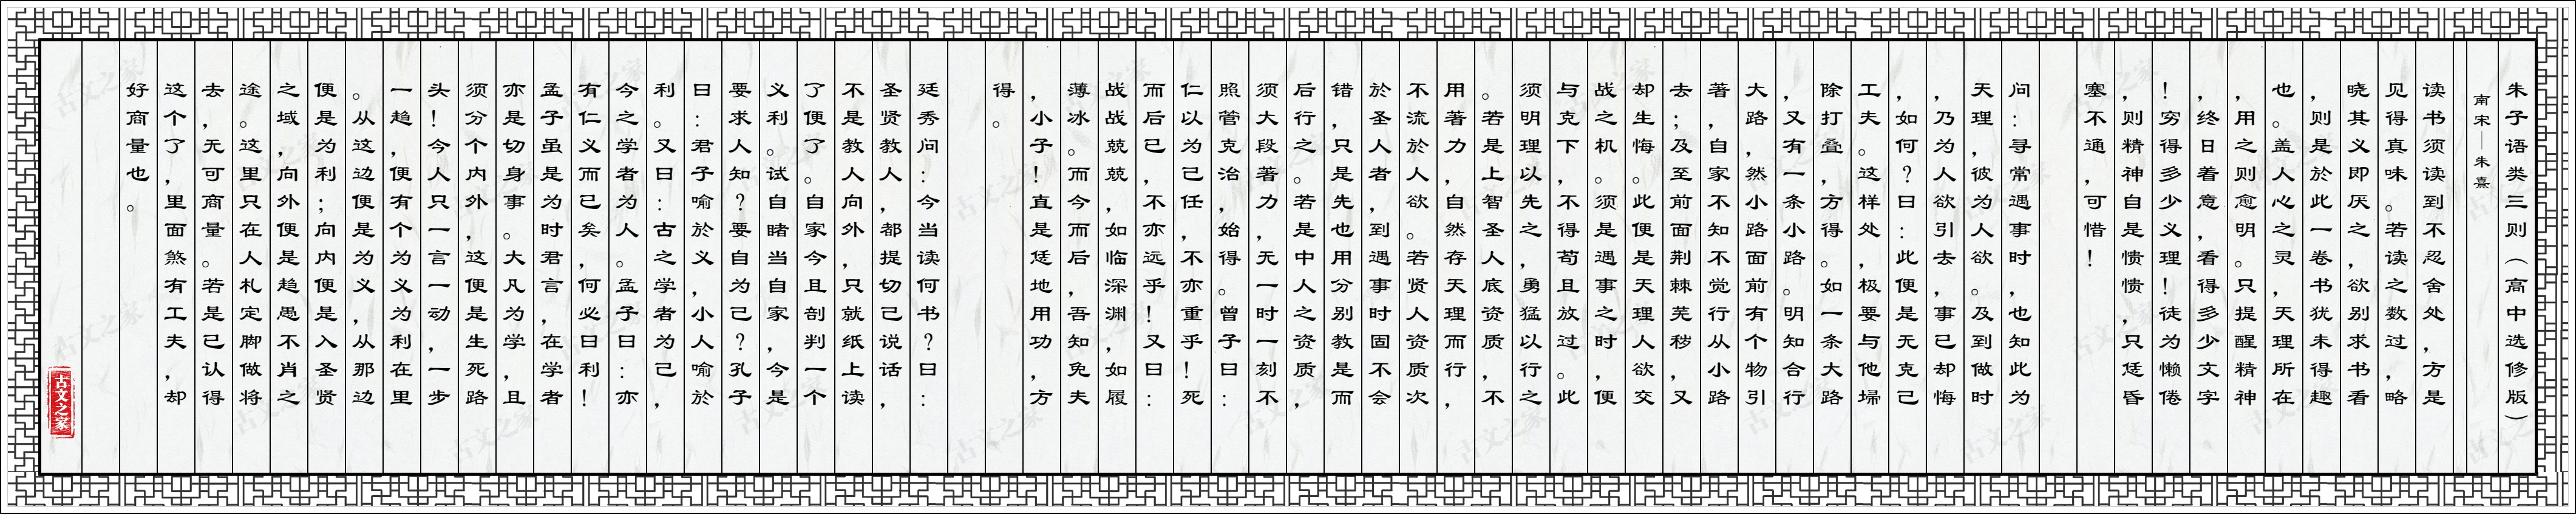 朱子语类三则（高中选修版）
南宋—朱熹
读书须读到不忍舍处，方是
见得真味。若读之数过，略
晓其义即厌之，欲别求书看
，则是於此一卷书犹未得趣
也。盖人心之灵，天理所在
，用之则愈明。只提醒精神
，终日着意，看得多少文字
！穷得多少义理！徒为懒倦
，则精神自是愦愦，只恁昏
塞不通，可惜！
问：寻常遇事时，也知此为
天理，彼为人欲。及到做时
，乃为人欲引去，事已却悔
，如何？曰：此便是无克己
工夫。这样处，极要与他埽
除打叠，方得。如一条大路
，又有一条小路。明知合行
大路，然小路面前有个物引
著，自家不知不觉行从小路
去；及至前面荆棘芜秽，又
却生悔。此便是天理人欲交
战之机。须是遇事之时，便
与克下，不得苟且放过。此
须明理以先之，勇猛以行之
。若是上智圣人底资质，不
用著力，自然存天理而行，
不流於人欲。若贤人资质次
於圣人者，到遇事时固不会
错，只是先也用分别教是而
后行之。若是中人之资质，
须大段著力，无一时一刻不
照管克治，始得。曾子曰：
仁以为己任，不亦重乎！死
而后已，不亦远乎！又曰：
战战兢兢，如临深渊，如履
薄冰。而今而后，吾知免夫
，小子！直是恁地用功，方
得。
廷秀问：今当读何书？曰：
圣贤教人，都提切己说话，
不是教人向外，只就纸上读
了便了。自家今且剖判一个
义利。试自睹当自家，今是
要求人知？要自为己？孔子
曰：君子喻於义，小人喻於
利。又曰：古之学者为己，
今之学者为人。孟子曰：亦
有仁义而已矣，何必曰利！
孟子虽是为时君言，在学者
亦是切身事。大凡为学，且
须分个内外，这便是生死路
头！今人只一言一动，一步
一趋，便有个为义为利在里
。从这边便是为义，从那边
便是为利；向内便是入圣贤
之域，向外便是趋愚不肖之
途。这里只在人札定脚做将
去，无可商量。若是已认得
这个了，里面煞有工夫，却
好商量也。
古文之家